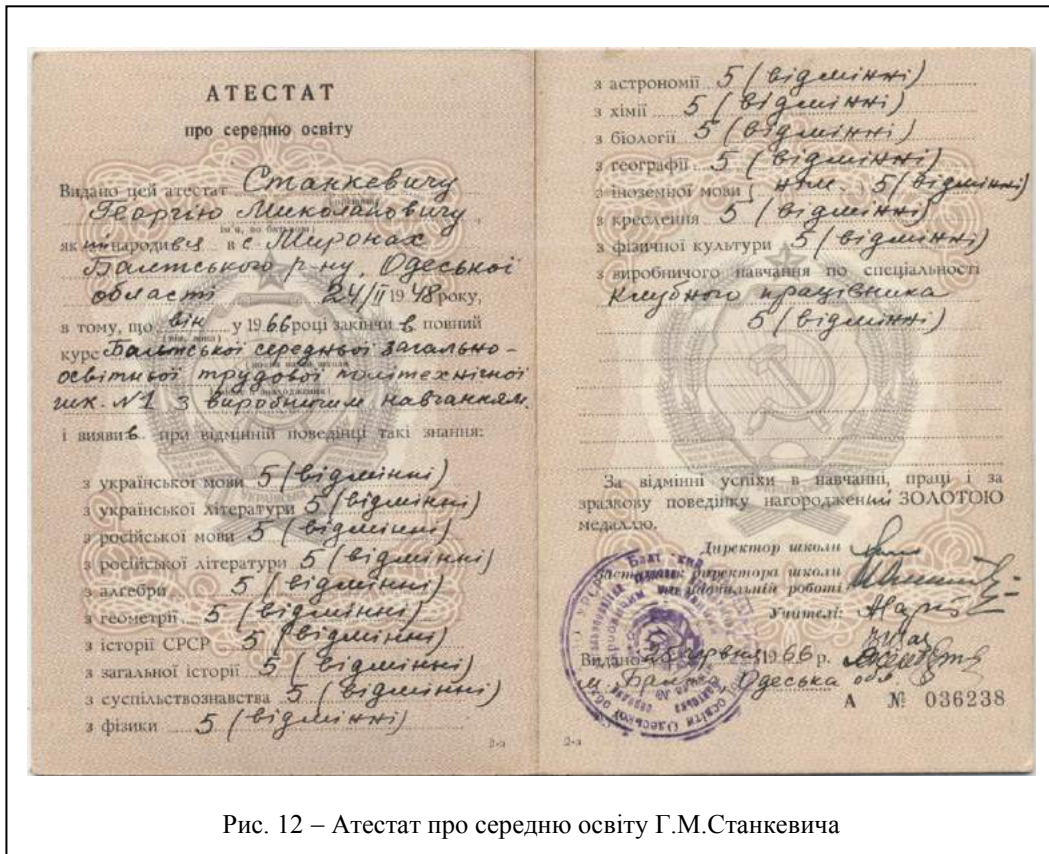 АТЕСТАТ
про середню освіту
Видано цей атестат Станкевичу
Георгію Миколайовичу,
ім'я, по батькові
який народився в с Миронах
Балтського р-ну, Одеської
області 24/II 1948 року,
в тому, що він у 1966 році закінчив повний
курс Балтської середньої загально-
освітньої трудової політехнічної
шк. №1 з виробничим навчанням.
і виявив при відмінній поведінці такі знання:
з української мови 5 (відмінні)
з української літератури 5 (відмінні)
з російської мови 5 (відмінні)
з російської літератури 5 (відмінні)
з алгебри 5 (відмінні)
з геометрії 5 (відмінні)
з історії СРСР 5 (відмінні)
з загальної історії 5 (відмінні)
з суспільствознавства 5 (відмінні)
з фізики 5 (відмінні)
2-а
з астрономії 5 (відмінні)
з хімії 5 (відмінні)
з біології 5 (відмінні)
з географії 5 (відмінні)
з іноземної мови (нім. 5 (відмінні)
з креслення 5 (відмінні)
з фізичної культури 5 (відмінні)
з виробничого навчання по спеціальності
клубного працівника
5 (відмінні)
За відмінні успіхи в навчанні, праці і за
зразкову поведінку нагороджений ЗОЛОТОЮ
медаллю.
Директор школи
Заступник директора школи
по навчальній роботі
Учителі:
Видано червня 1966 р.
м. Балта Одеська обл.
А № 036238
2-а
Рис. 12 – Атестат про середню освіту Г.М.Станкевича